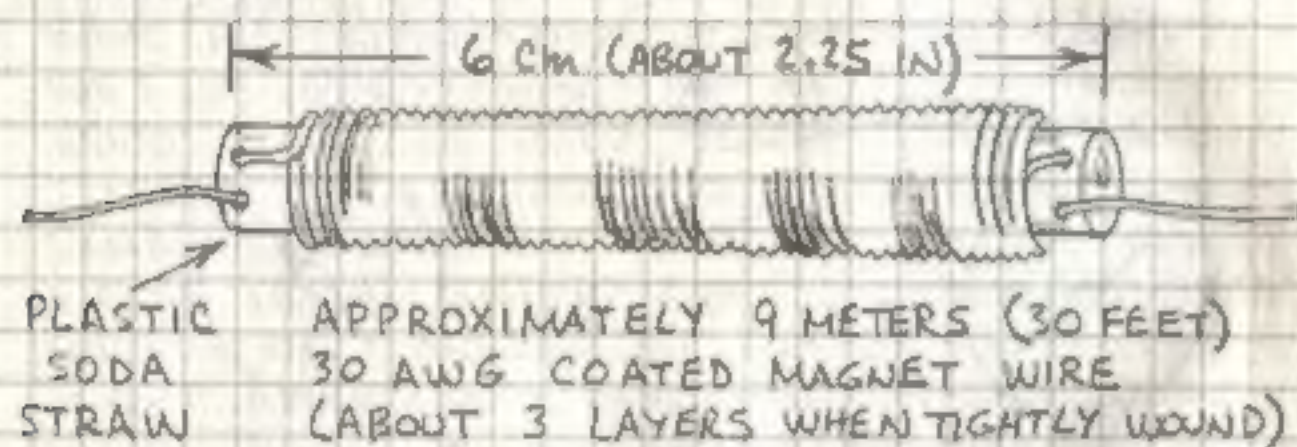 6 Cm (ABOUT 2.25 IN)
PLASTIC
SODA
STRAW
APPROXIMATELY 9 METERS (30 FEET)
30 AWG COATED MAGNET WIRE
(ABOUT 3 LAYERS WHEN TIGHTLY WOUND)